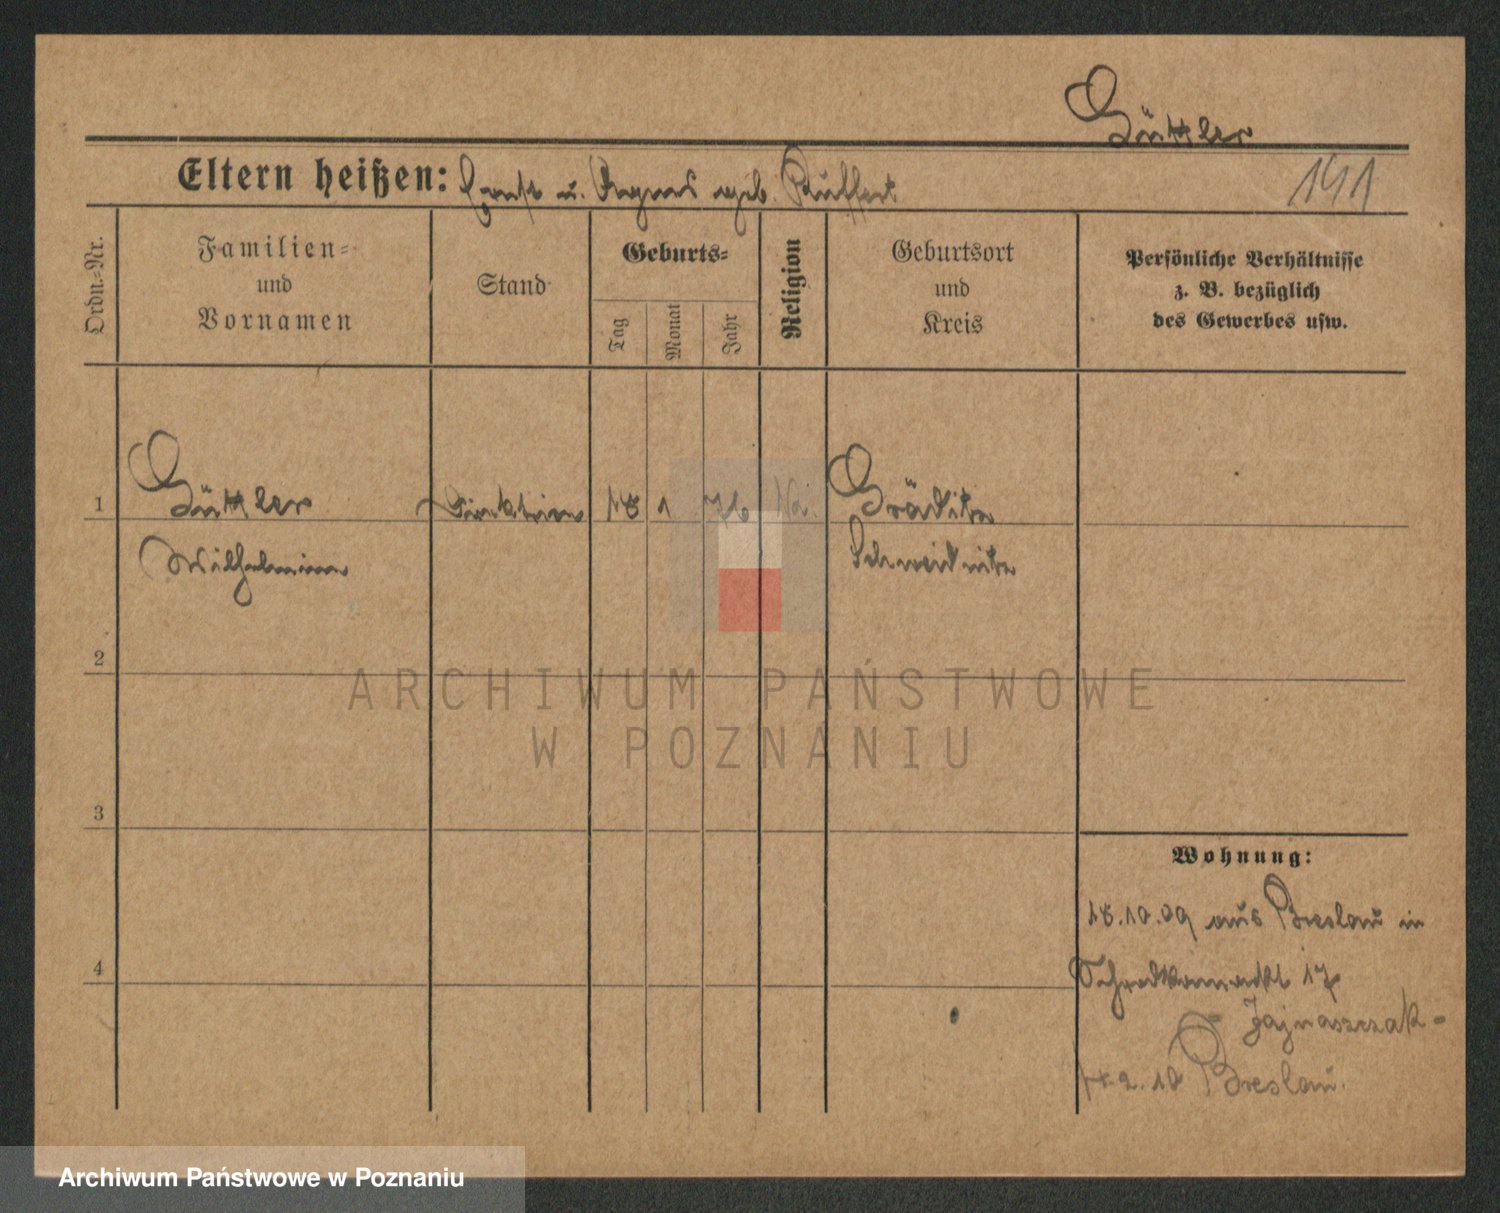 Güttler
Eltern heißen: Ernst u. Agnes geb. Rüffert
141
Ordn.-Nr.
Familien-
und
Vornamen
Stand
Geburts-
Tag
Monat
Jahr
Religion
Geburtsort
und
Kreis
Persönliche Verhältnisse
z. B. bezüglich
des Gewerbes usw.
1
Güttler
Direktrice
18
1
76
Gräditz
Wilhelmine
Schweidnitz
2
ARCHIWUM PAŃSTWOWE
W POZNANIU
3
Wohnung:
18.10.09 aus Breslau in
4
17
Jajnaszczak-
2.10 Breslau.
Archiwum Państwowe w Poznaniu